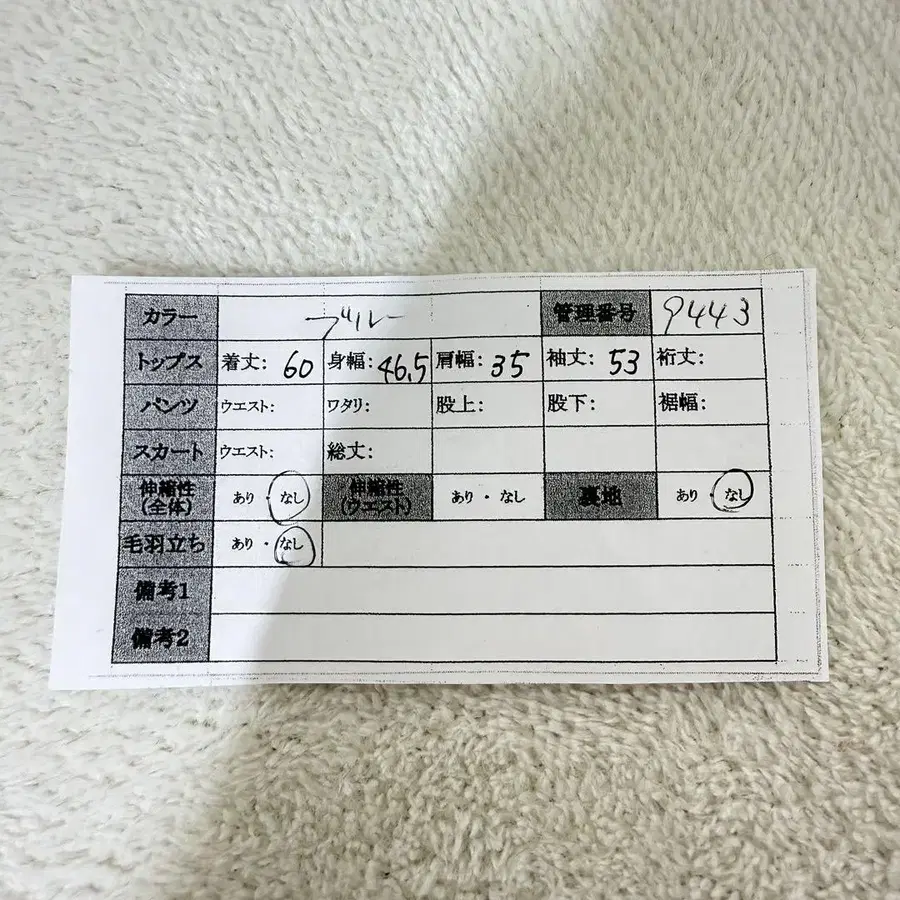 カラー ブルー 管理番号 9443
トップス 着丈: 60 身幅: 46.5 肩幅: 35 袖丈: 53 裄丈:
パンツ ウエスト: ワタリ: 股上: 股下: 裾幅:
スカート ウエスト: 総丈:
伸縮性(全体) あり・なし 伸縮性(ウエスト) あり・なし 裏地 あり・なし
毛羽立ち あり・なし
備考1
備考2